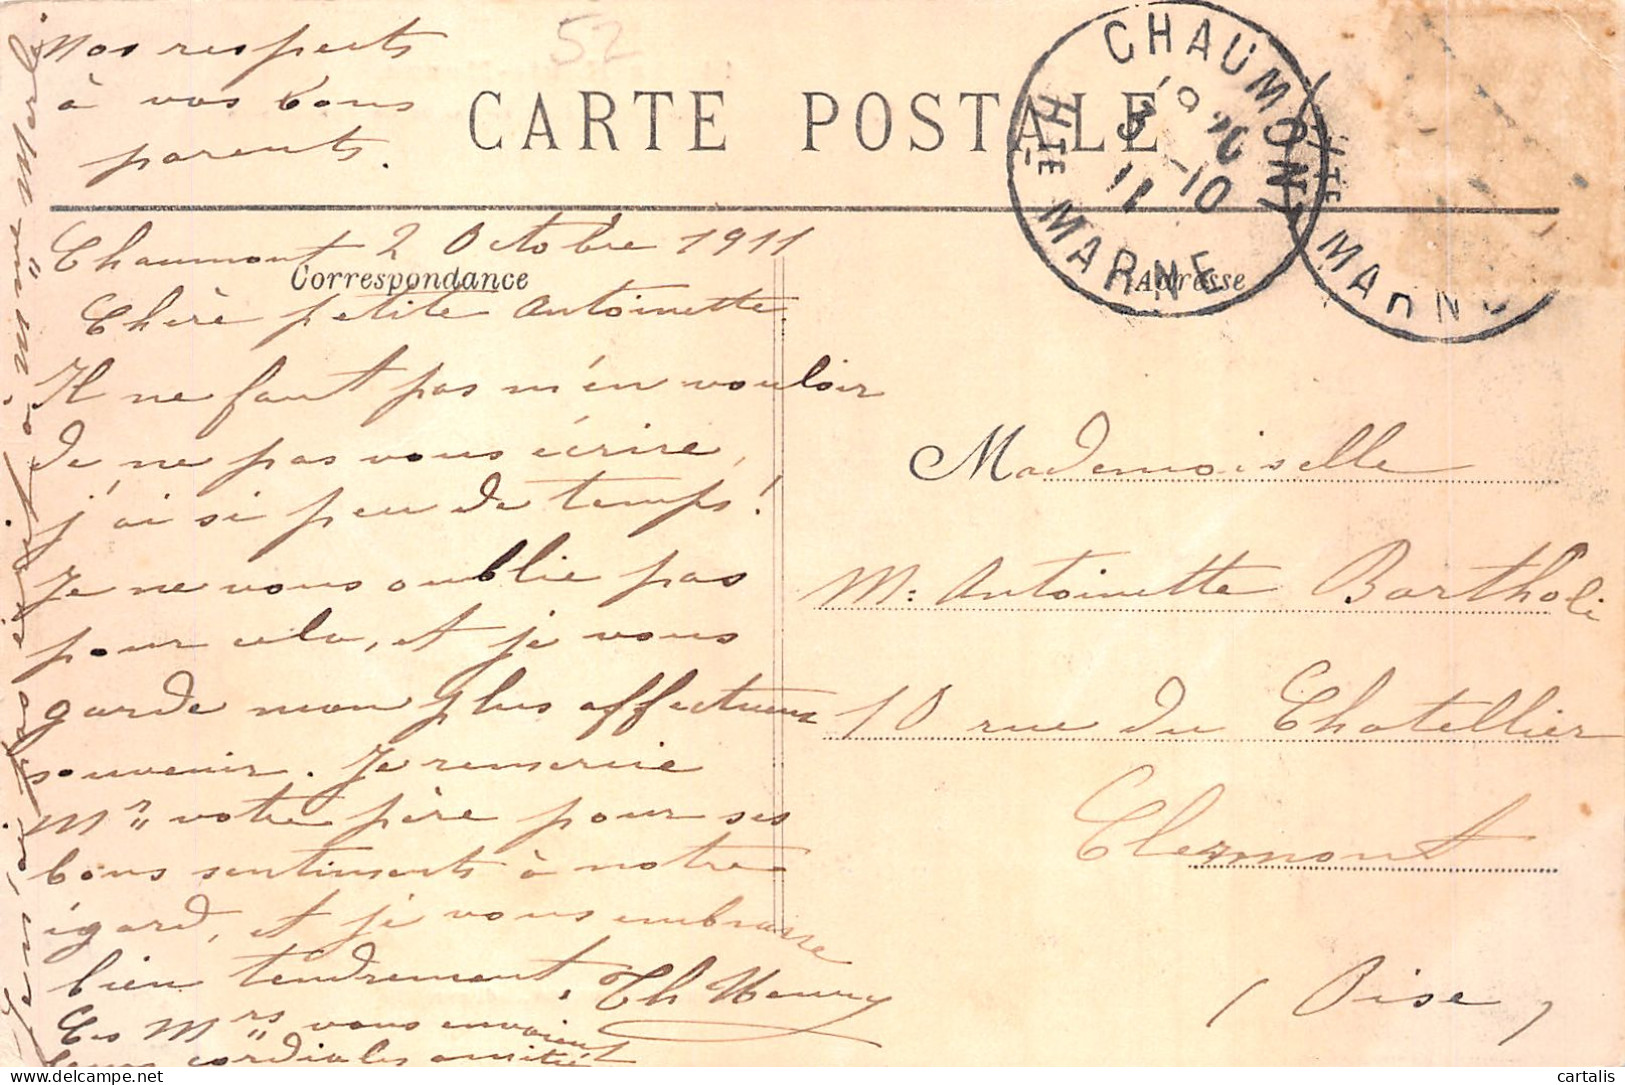 Nos respects
à vos bons
parents.
52
CARTE POSTALE
CHAUMONT
3 -10
11
HTE MARNE
HTE MARNE
Chaumont 2 Octobre 1911
Correspondance
Adresse
Chère petite Antoinette,
Il ne faut pas m'en vouloir
de ne pas vous écrire,
j'ai si peu de temps!
Je ne vous oublie pas
pour cela, et je vous
garde mon plus affectueux
souvenir. Je remercie
Mr votre père pour ses
bons sentiments à notre
égard, et je vous embrasse
bien tendrement. Th Henry
Ces Mrs vous envoient
leurs cordiales amitiés
Mademoiselle
M: Antoinette Bartholi
10 rue du Chatellier
Clermont
(Oise)
Je n'ai pas écrit à
cartalis